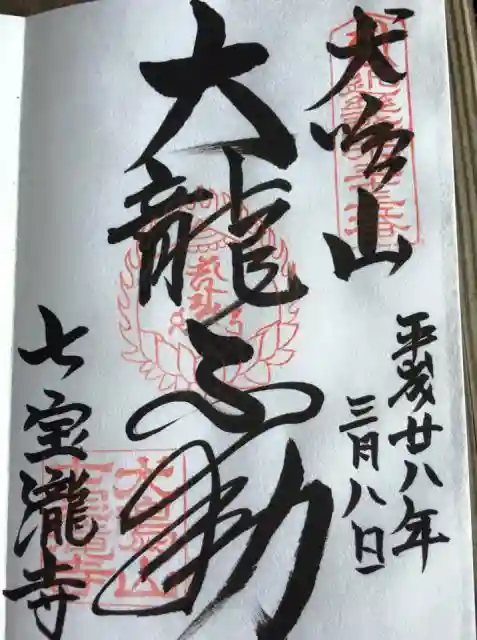 犬鳴山
平成廿八年
三月八日
大龍不動
七宝瀧寺